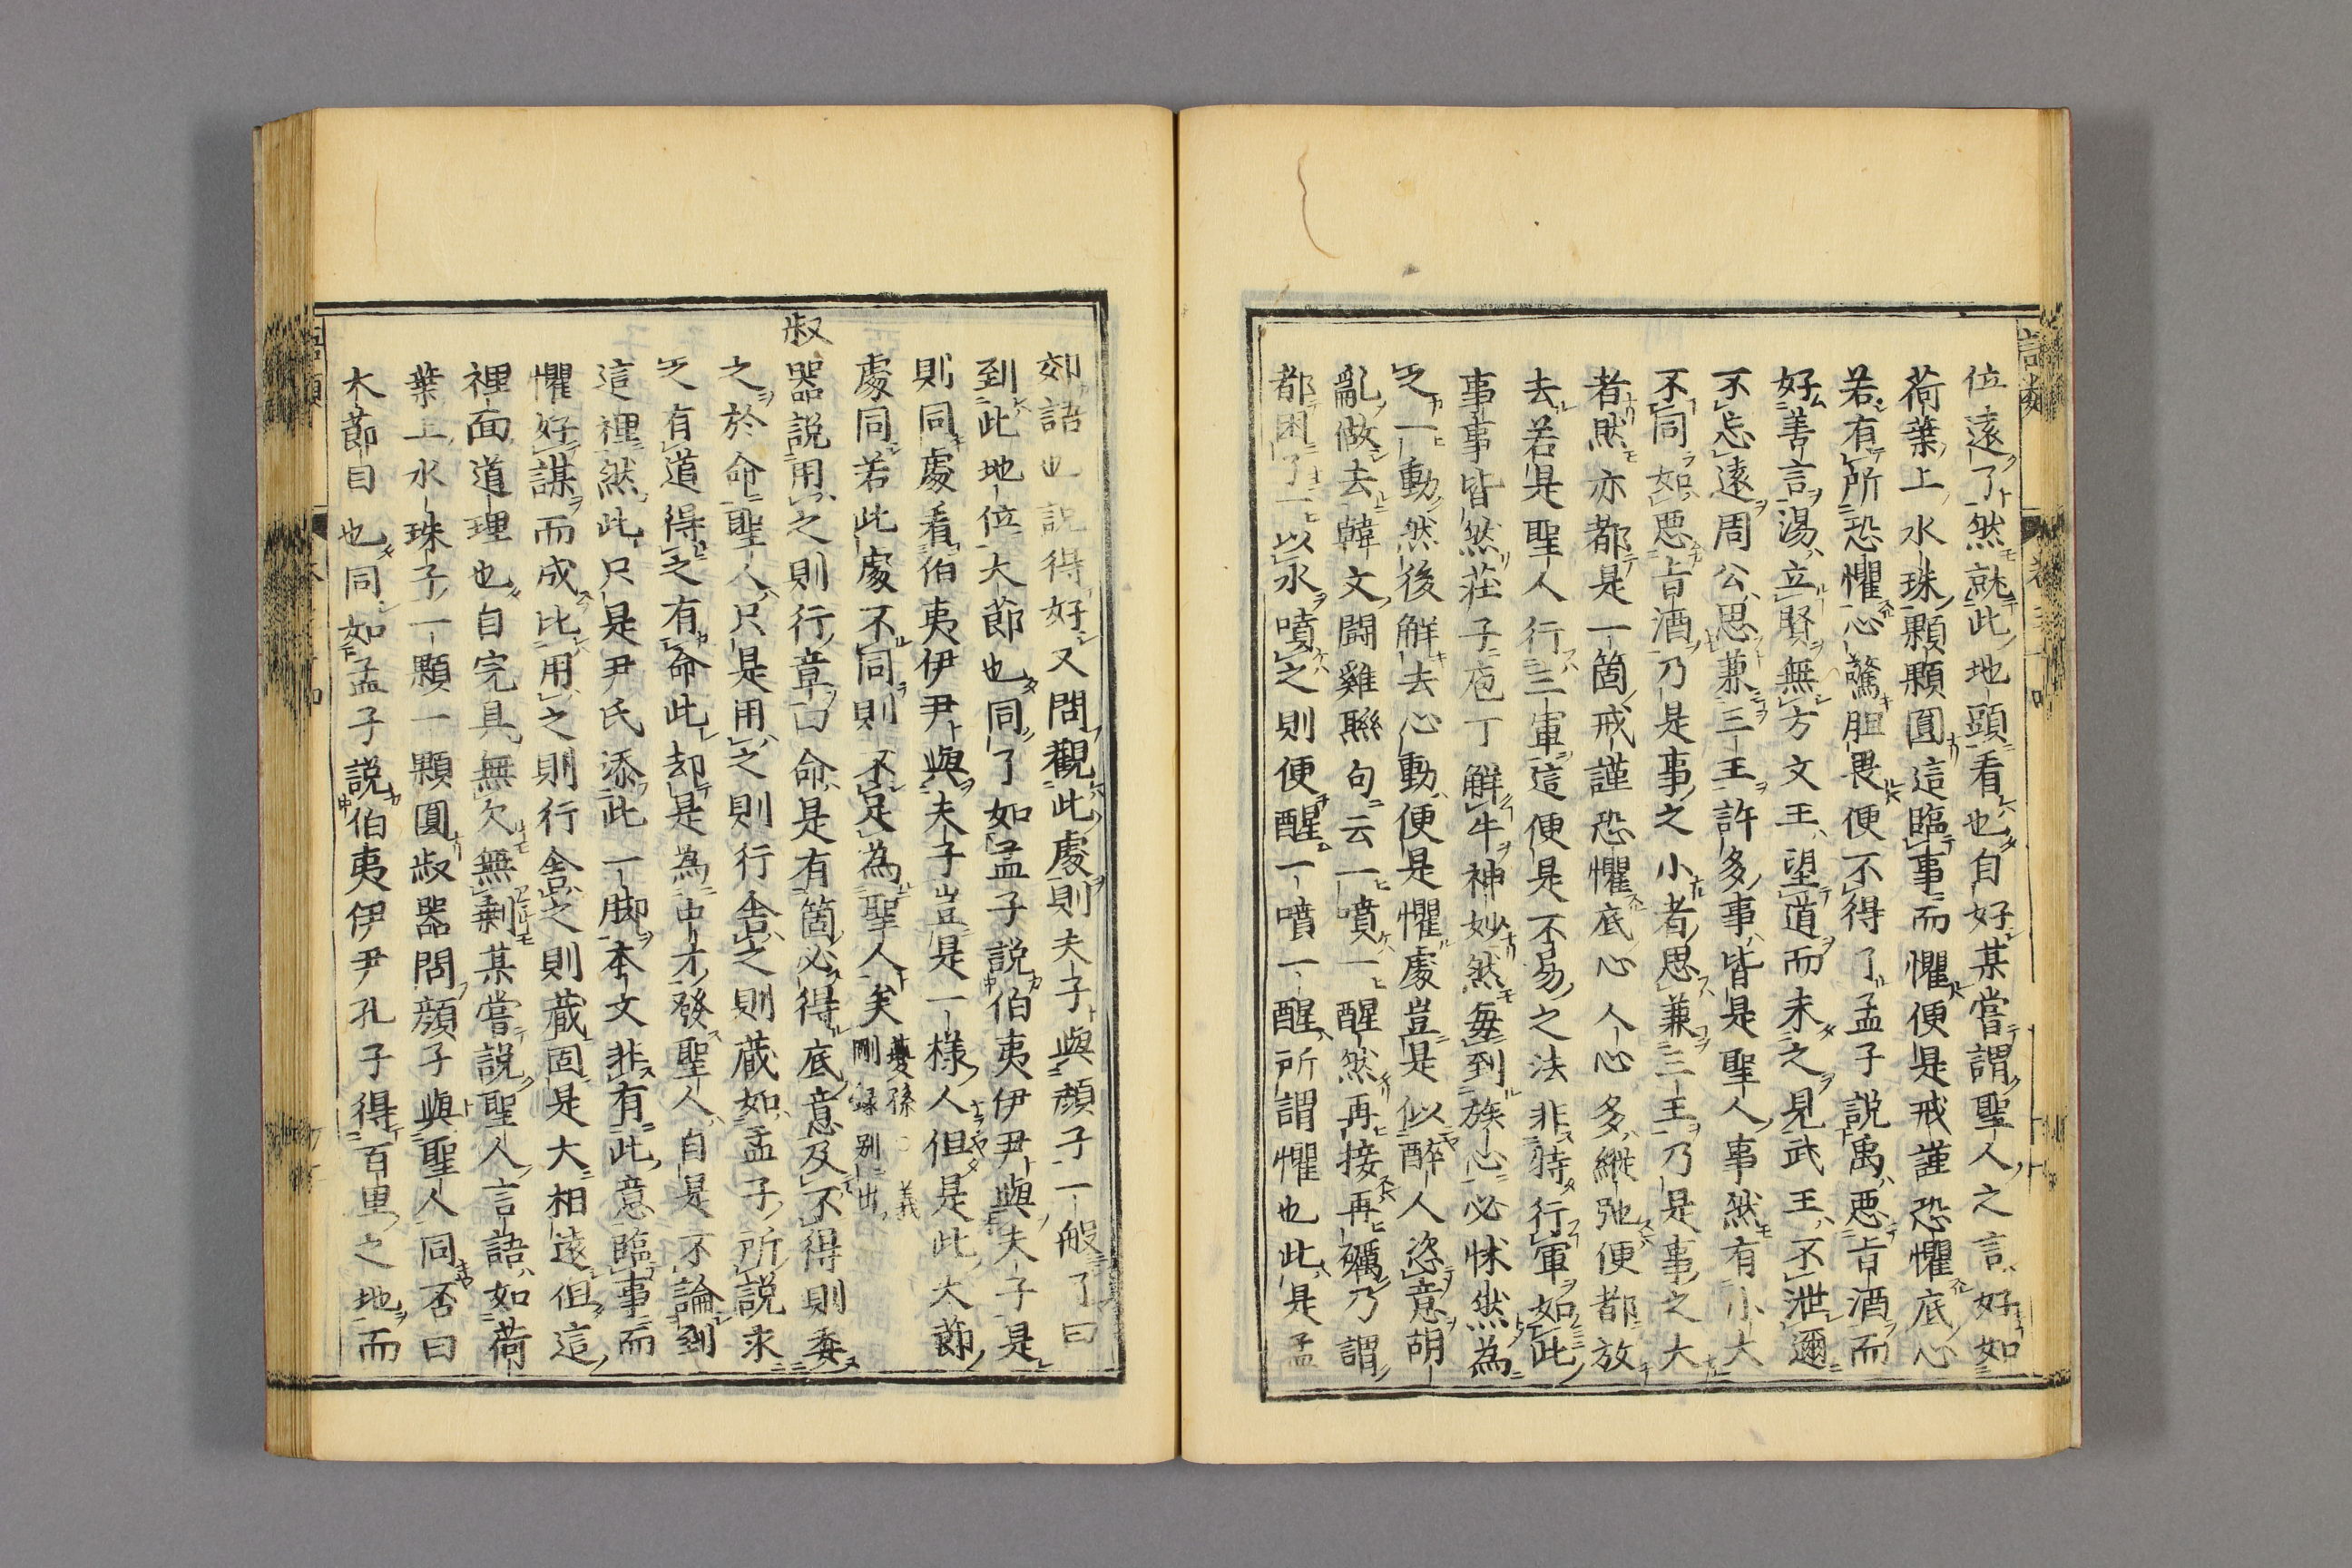 位遠了然就此地頭看也自好某嘗謂聖人之言好如
荷葉上水珠顆顆圓這臨事而懼便是戒謹恐懼底心
若有所恐懼心驚胆畏便不得了孟子說禹惡旨酒而
好善言湯立賢無方文王望道而未之見武王不泄邇
不忘遠周公思兼三王許多事皆是聖人事然有小大
不同如惡旨酒乃是事之小者思兼三王乃是事之大
者然亦都是一箇戒謹恐懼底心人心多縱弛便都放
去若是聖人行三軍這便是不易之法非特行軍如此
事事皆然莊子庖丁解牛神妙然每到族心必怵然為
之一動然後解去心動便是懼處豈是似醉人恣意胡
亂做去韓文鬪雞聯句云一噴一醒然再接再礪乃謂
都困了一以水噴之則便醒一噴一醒所謂懼也此是孟
郊語也說得好又問觀此處則夫子與顏子一般了曰
到此地位大節也同了如孟子說伯夷伊尹與夫子是
則同處看伯夷伊尹與夫子豈是一樣人但是此大節
處同若此處不同則不足為聖人矣夔孫 義
剛錄別出
叔器說用之則行章曰命是有箇必得底意及不得則委
之於命聖人只是用之則行舍之則藏如孟子所說求
之有道得之有命此却是為中才發聖人自是不論到
這裡然此只是尹氏添此一脚本文非有此意臨事而
懼好謀而成比用之則行舍之則藏固是大相遠但這
裡面道理也自完具無欠無剩某嘗說聖人言語如荷
葉上水珠子一顆一顆圓叔器問顏子與聖人同否曰
大節目也同如孟子說伯夷伊尹孔子得百里之地而